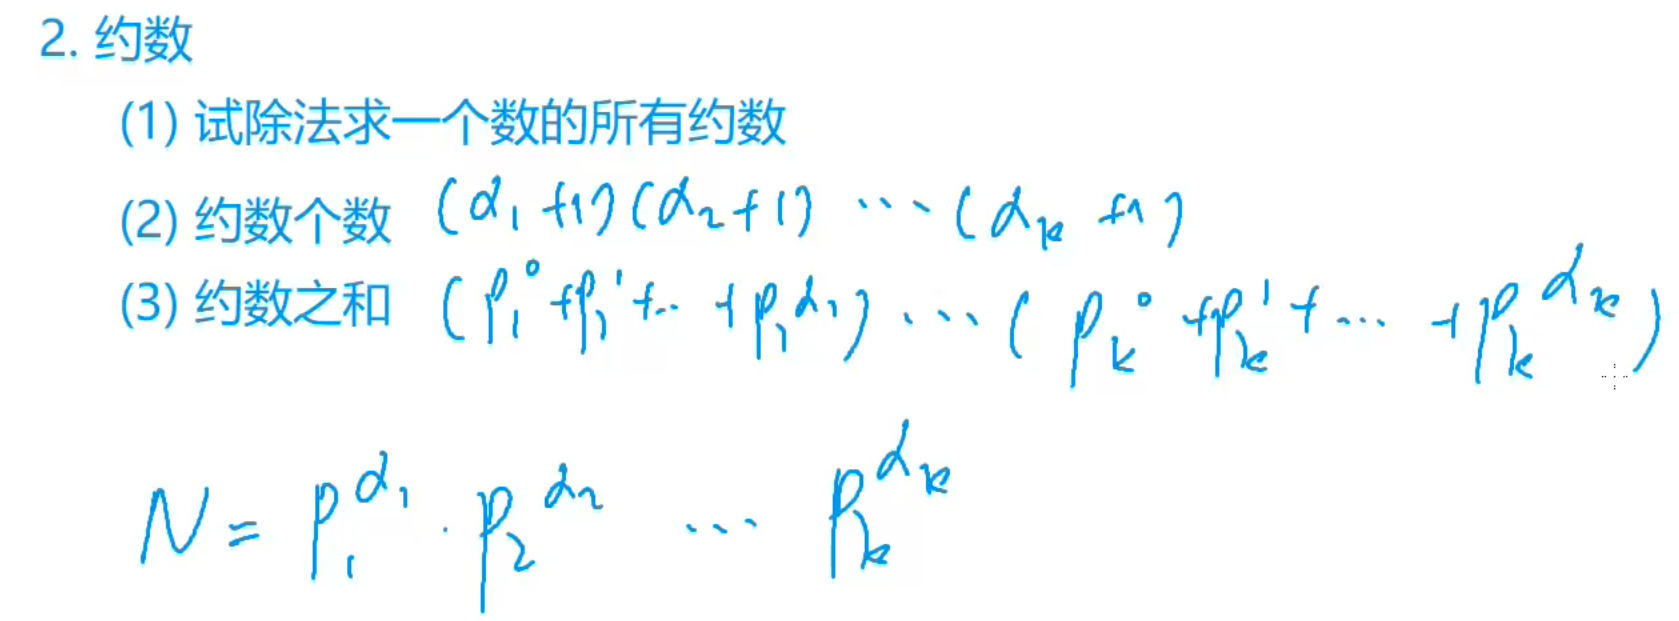 2. 约数
(1) 试除法求一个数的所有约数
(2) 约数个数 (α₁+1)(α₂+1) ... (αₖ+1)
(3) 约数之和 (p₁⁰+p₁¹+...+p₁^α₁) ... (pₖ⁰+pₖ¹+...+pₖ^αₖ)
N = p₁^α₁ · p₂^α₂ ... pₖ^αₖ